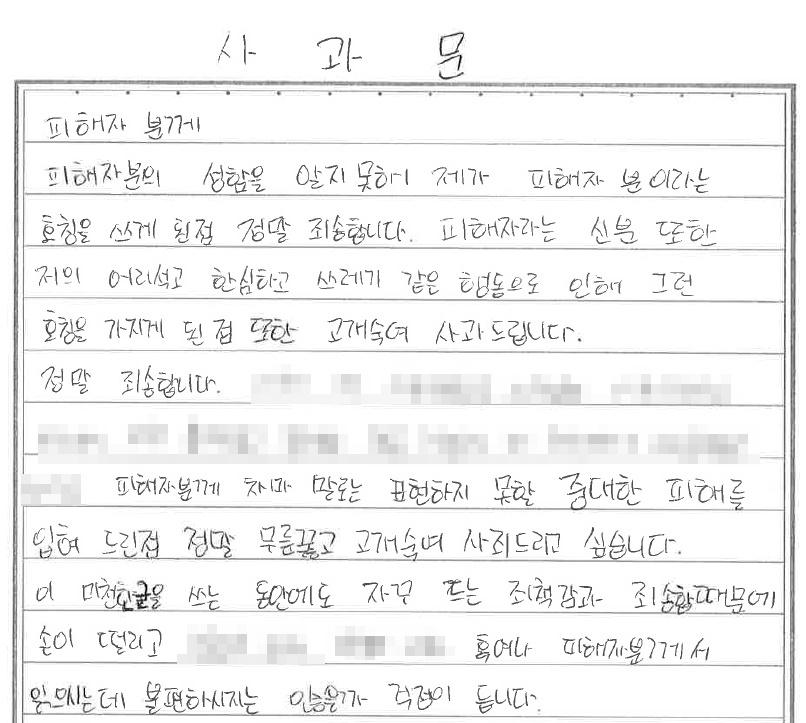 사과문
피해자 분께
피해자분의 성함을 알지 못하여 제가 피해자 분이라는
호칭을 쓰게 된점 정말 죄송합니다. 피해자라는 신분 또한
저의 어리석고 한심하고 쓰레기 같은 행동으로 인해 그런
호칭을 가지게 된 점 또한 고개숙여 사과드립니다.
정말 죄송합니다.
피해자분께 차마 말로는 표현하지 못할 중대한 피해를
입혀 드린점 정말 무릎꿇고 고개숙여 사죄드리고 싶습니다.
이 미천한글을 쓰는 동안에도 자꾸 드는 죄책감과 죄송함때문에
손이 떨리고 혹여나 피해자분께서
읽으시는데 불편하시지는 않을가 걱정이 듭니다.